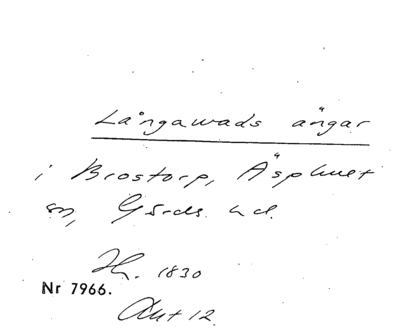 Långawads ängar
i Brostorp, Äsphult
sn, Gärds hd.
Hh. 1830
Nr 7966.
Akt 12